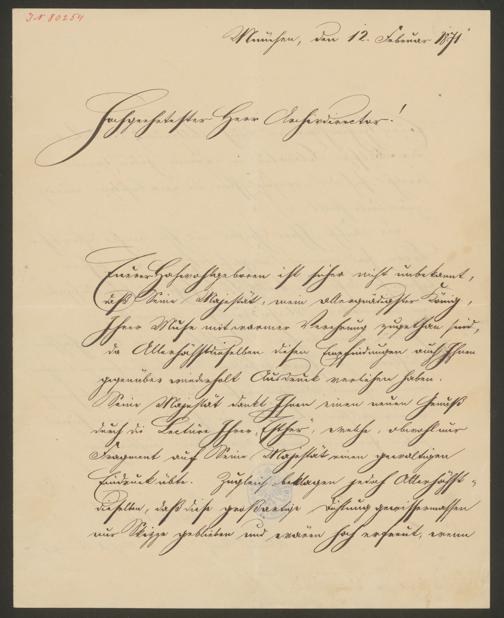 J.N 80254
München, den 12. Februar 1871
Hochgeehrtester Herr Archivdirector!
Euerer Hochwohlgeboren ist sicher nicht unbekannt,
daß Seine Majestät, mein allergnädigster König,
Ihrer Muse mit warmer Verehrung zugethan sind,
da Allerhöchstdieselben diesen Empfindungen auch Ihnen
gegenüber wiederholt Ausdruck verliehen haben.
Seine Majestät dankt Ihnen einen neuen Genuß
durch die Lectüre Ihrer „Esther", welche, obwohl nur
Fragment auf Seine Majestät einen gewaltigen
Eindruck übte. Zugleich beklagen jedoch Allerhöchst-
dieselben, daß diese großartige Dichtung gewissermassen
nur Skizze geblieben und wären hoch erfreut, wenn